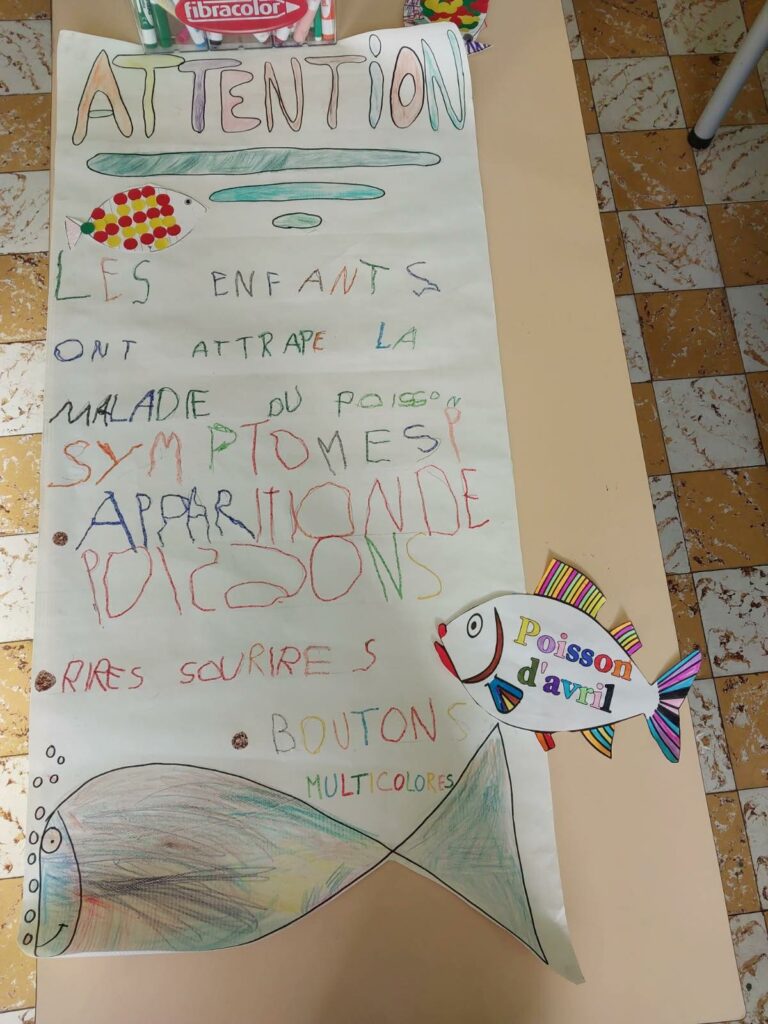 fibracolor
ATTENTiON
LES ENFANTS
ONT ATTRAPE LA
MALADIE DU POISSON
SYMPTOMES
APPARITION DE
POISSONS
RIRES SOURIRES
BOUTONS
MULTICOLORES
Poisson
d'avril